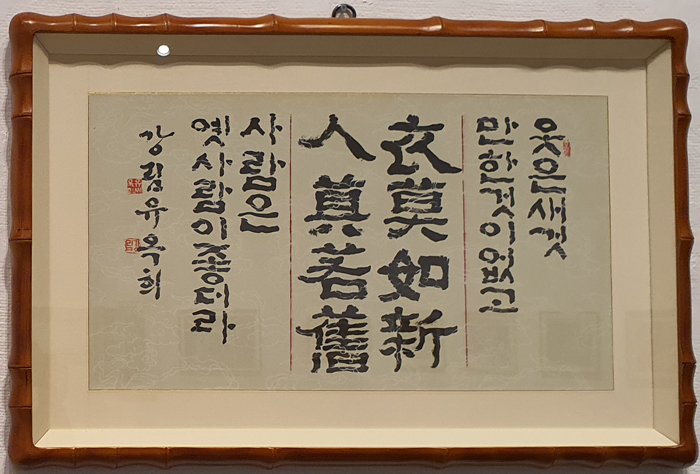 옷은 새것
만한 것이 없고
衣莫如新
人莫若舊
사람은
옛사람이 좋더라
강림 유옥희